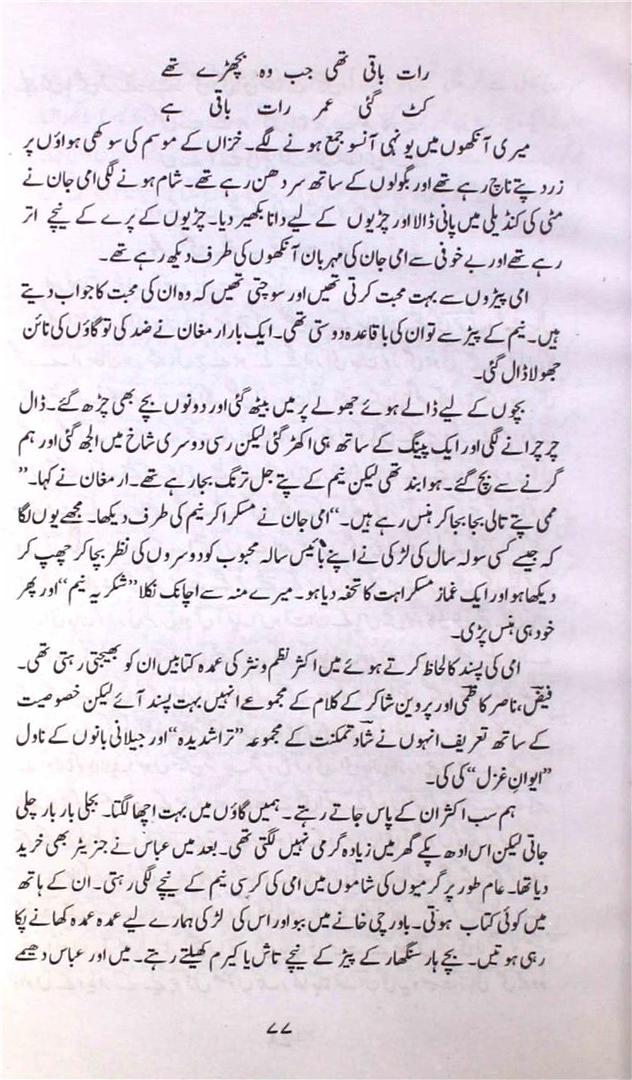 رات باقی تھی جب وہ بچھڑے تھے
کٹ گئی عمر رات باقی ہے
میری آنکھوں میں یونہی آنسو جمع ہونے لگے۔ خزاں کے موسم کی سوکھی ہواؤں پر
زرد پتے ناچ رہے تھے اور بگولوں کے ساتھ سر دھن رہے تھے۔ شام ہونے لگی امی جان نے
مٹی کی کنڈیلی میں پانی ڈالا اور چڑیوں کے لیے دانا بکھیر دیا۔ چڑیوں کے پرے کے نیچے اتر
رہے تھے اور بے خوفی سے امی جان کی مہربان آنکھوں کی طرف دیکھ رہے تھے۔
امی پیڑوں سے بہت محبت کرتی تھیں اور سوچتی تھیں کہ وہ ان کی محبت کا جواب دیتے
ہیں۔ نیم کے پیڑ سے تو ان کی باقاعدہ دوستی تھی۔ ایک بار ارمغان نے ضد کی تو گاؤں کی نائن
جھولا ڈال گئی۔
بچوں کے لیے ڈالے ہوئے جھولے پر میں بیٹھ گئی اور دونوں بچے بھی چڑھ گئے۔ ڈال
چرچرانے لگی اور ایک پینگ کے ساتھ ہی اکھڑ گئی لیکن رسی دوسری شاخ میں الجھ گئی اور ہم
گرنے سے بچ گئے۔ ہوا بند تھی لیکن نیم کے پتے جل ترنگ بجا رہے تھے۔ ارمغان نے کہا۔ ”
ممی پتے تالی بجا بجا کر ہنس رہے ہیں۔“ امی جان نے مسکرا کر نیم کی طرف دیکھا۔ مجھے یوں لگا
کہ جیسے کسی سولہ سال کی لڑکی نے اپنے بائیس سالہ محبوب کو دوسروں کی نظر بچا کر چھپ کر
دیکھا ہو اور ایک غماز مسکراہٹ کا تحفہ دیا ہو۔ میرے منہ سے اچانک نکلا ”شکریہ نیم“ اور پھر
خود ہی ہنس پڑی۔
امی کی پسند کا لحاظ کرتے ہوئے میں اکثر نظم و نثر کی عمدہ کتابیں ان کو بھیجتی رہتی تھی۔
فیض، ناصر کاظمی اور پروین شاکر کے کلام کے مجموعے انہیں بہت پسند آئے لیکن خصوصیت
کے ساتھ تعریف انہوں نے شاذ تمکنت کے مجموعہ ”تراشدیدہ“ اور جیلانی بانوں کے ناول
”ایوانِ غزل“ کی کی۔
ہم سب اکثر ان کے پاس جاتے رہتے۔ ہمیں گاؤں میں بہت اچھا لگتا۔ بجلی بار بار چلی
جاتی لیکن اس ادھ پکے گھر میں زیادہ گرمی نہیں لگتی تھی۔ بعد میں عباس نے جنریٹر بھی خرید
دیا تھا۔ عام طور پر گرمیوں کی شاموں میں امی کی کرسی نیم کے نیچے لگی رہتی۔ ان کے ہاتھ
میں کوئی کتاب ہوتی۔ باورچی خانے میں ببو اور اس کی لڑکی ہمارے لیے عمدہ عمدہ کھانے پکا
رہی ہوتیں۔ بچے ہار سنگھار کے پیڑ کے نیچے تاش یا کیرم کھیلتے رہتے۔ میں اور عباس دھیمے
۷۷